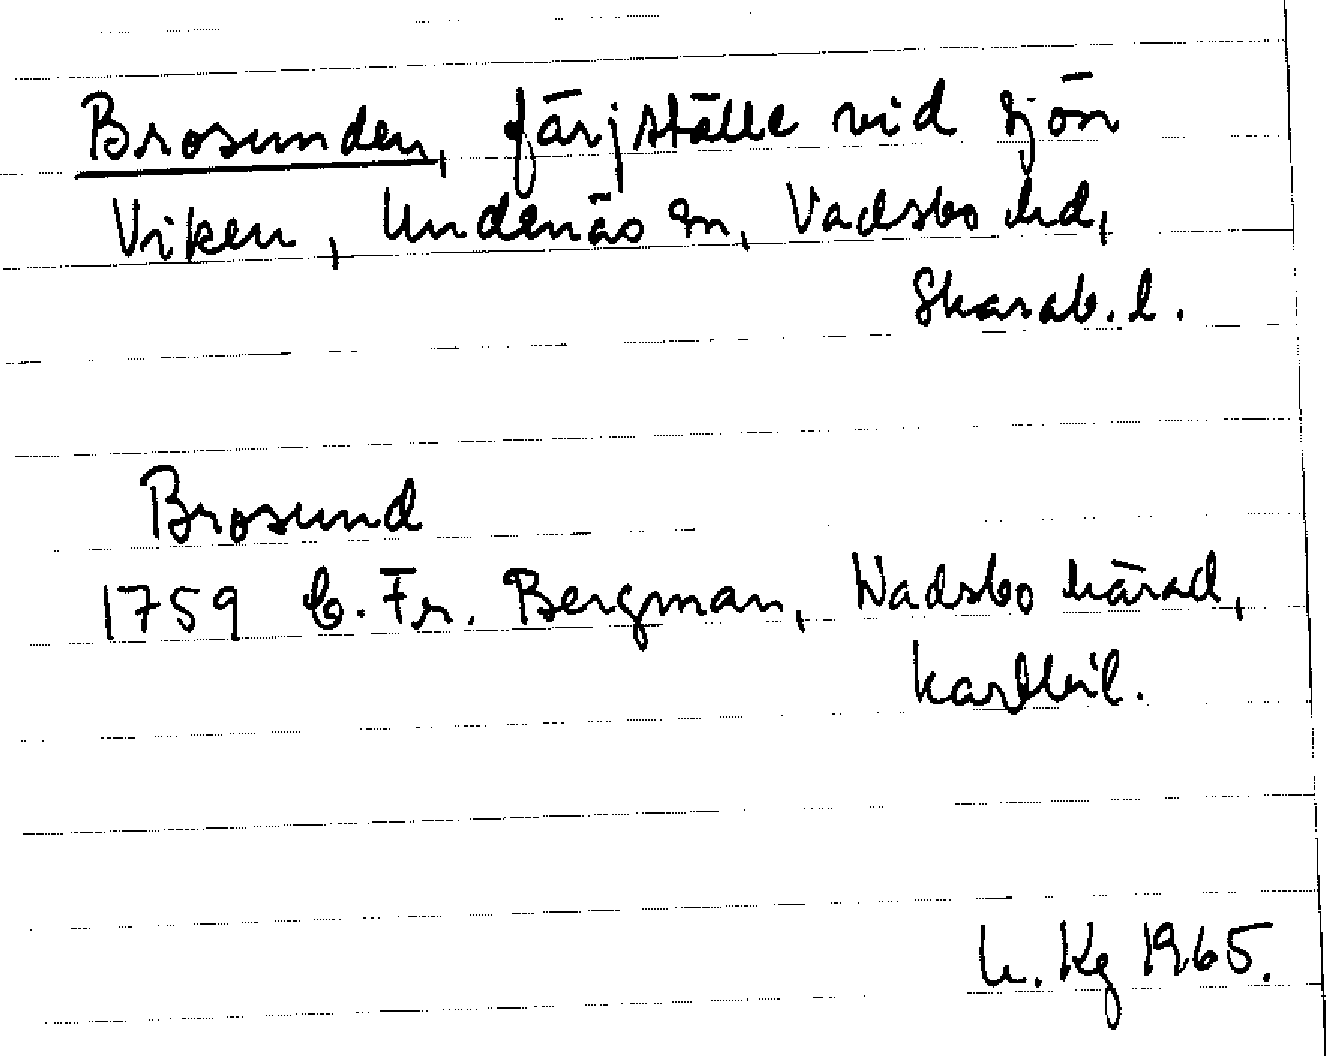 Brosunden, färjställe vid sjön
Viken, Undenäs sn, Vadsbo hd,
Skarab. l.
Brosund
1759 C. Fr. Bergman, Wadsbo härad,
kartbil.
h. Kg 1965.